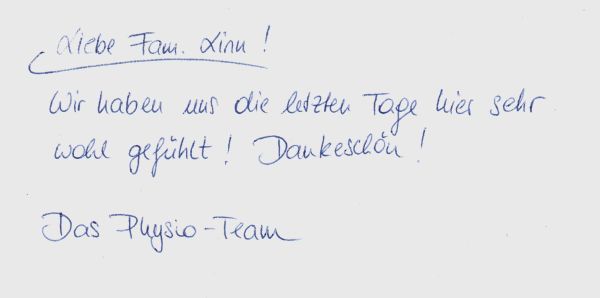 Liebe Fam. Linn !
Wir haben uns die letzten Tage hier sehr
wohl gefühlt ! Dankeschön !
Das Physio-Team